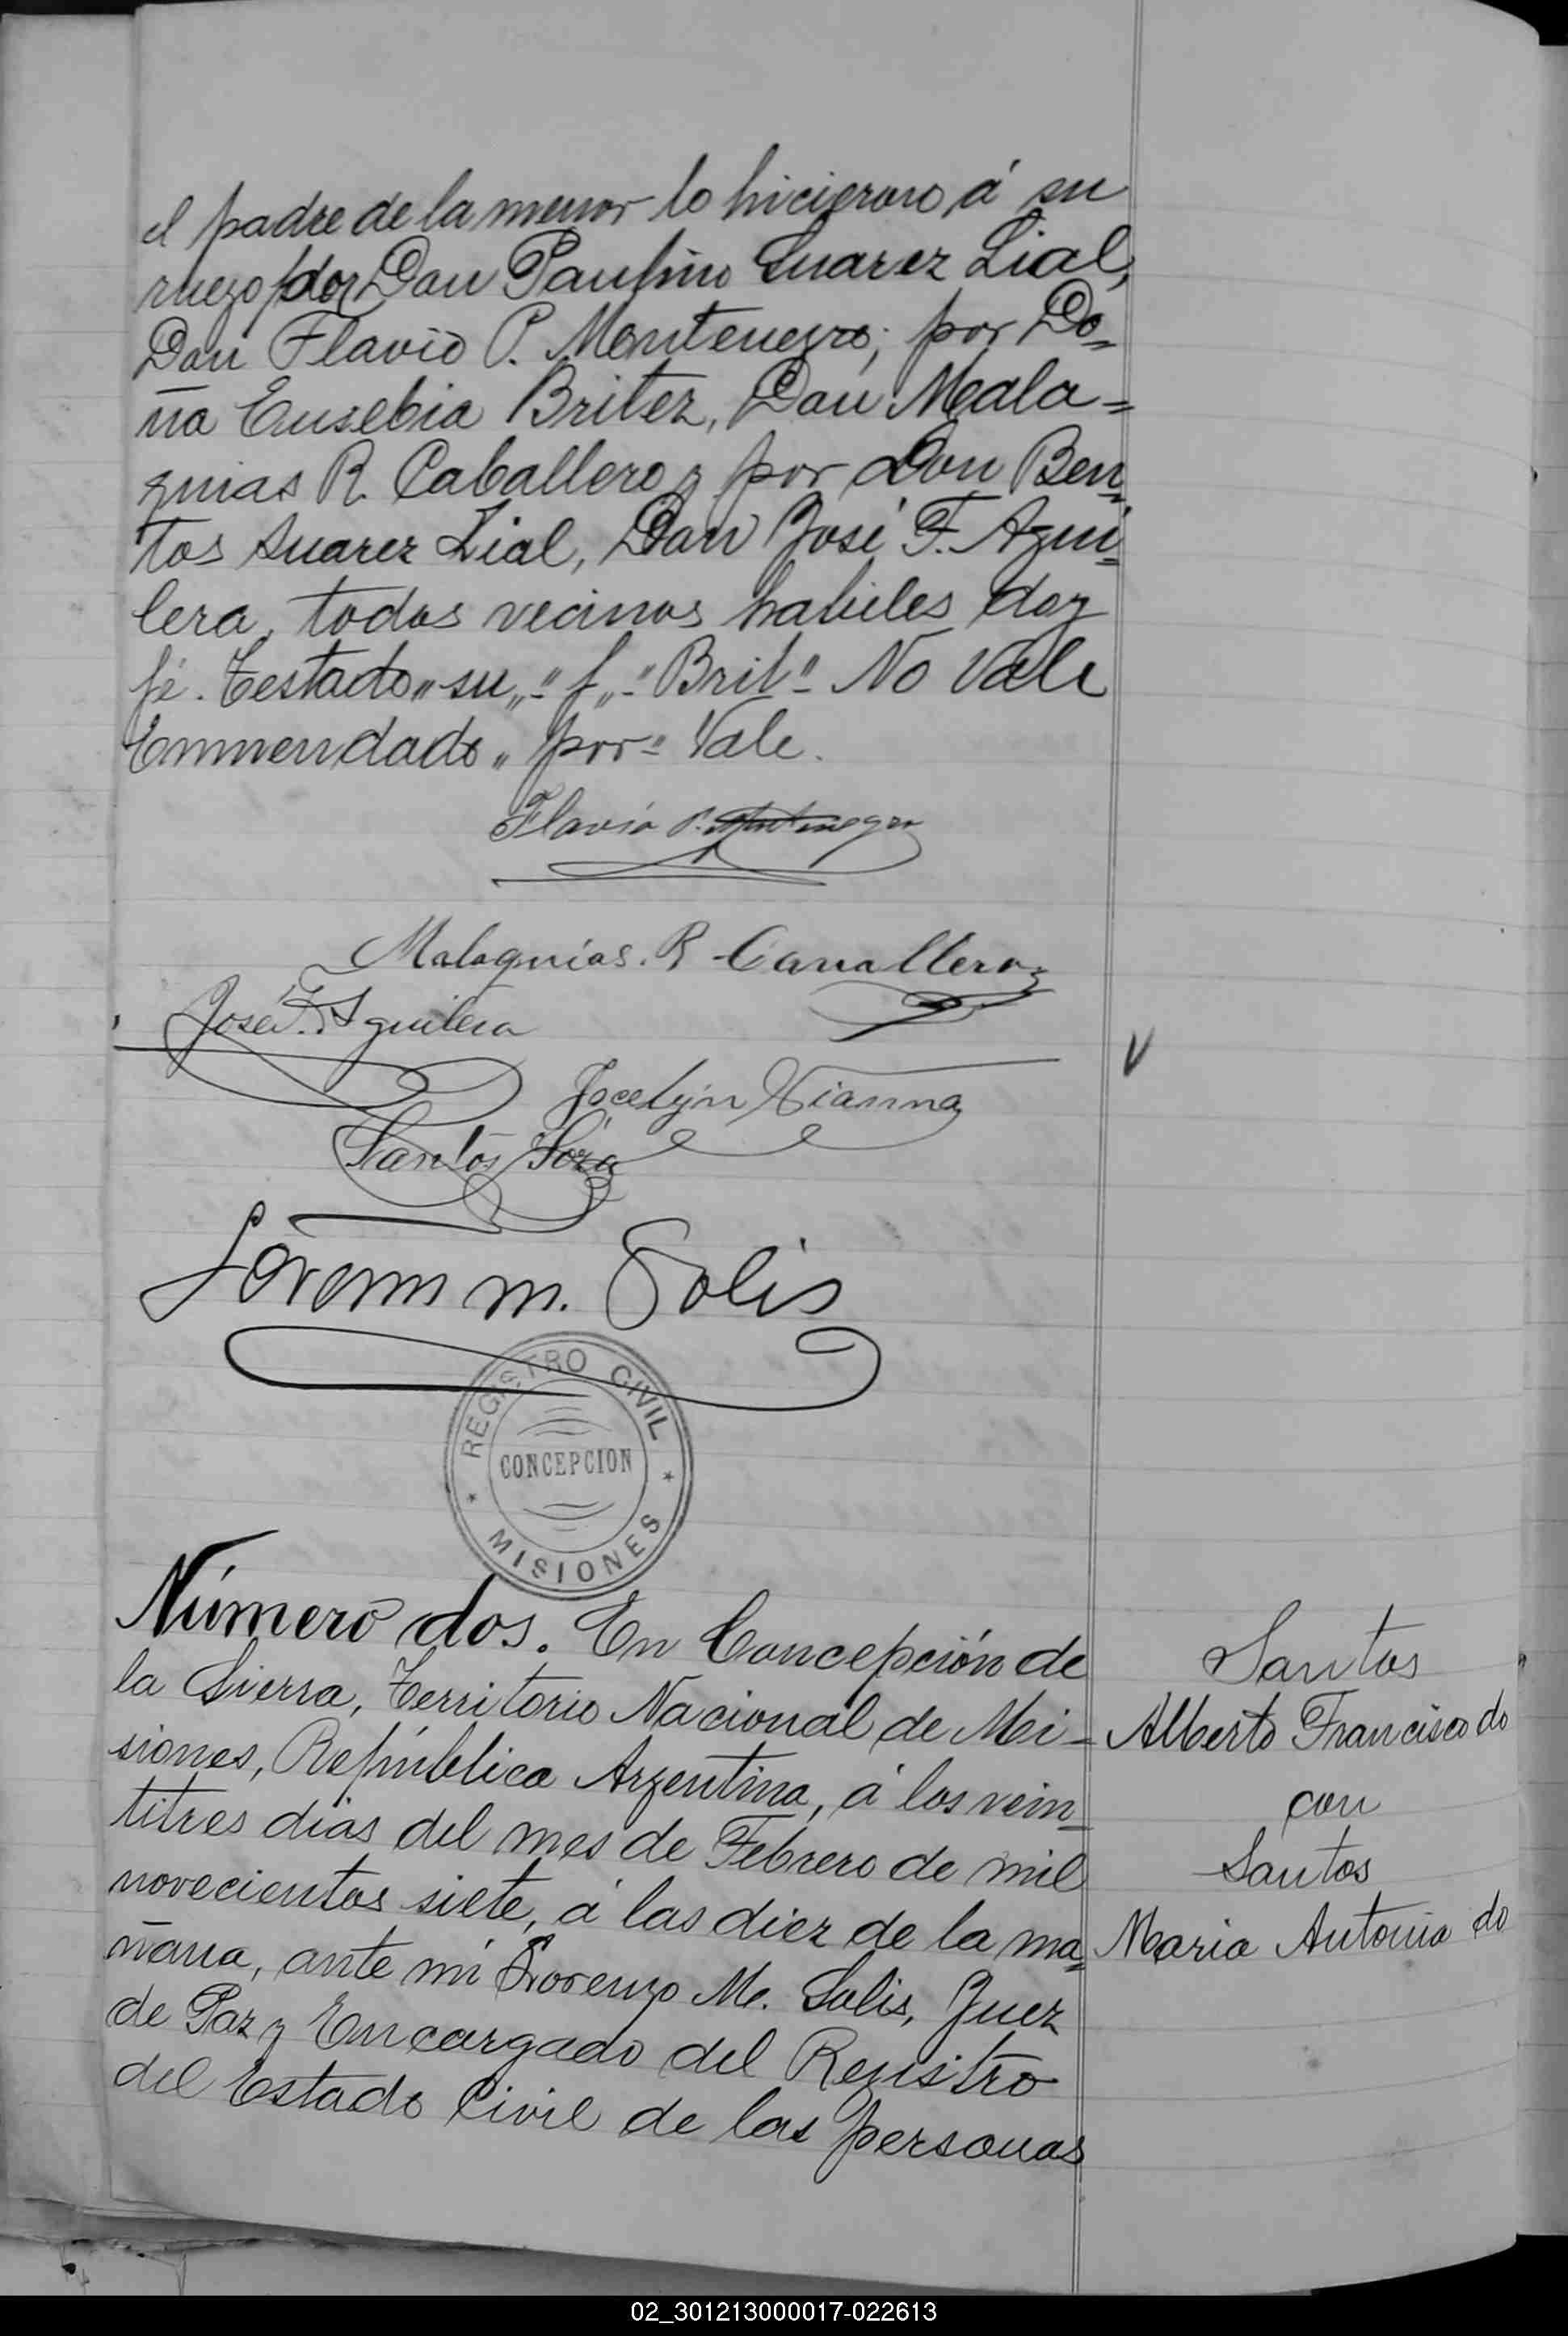 el padre de la menor lo hicieron, á su
ruego por Don Paulino Suarez Lial,
Don Flavio P. Montenegro; por Do=
ña Eusebia Britez, Don Mala=
quias R. Caballero y por Don Ben=
tos Suarez Lial, Don José F. Agui=
lera, todos vecinos habiles doy
fé. Testado "su" - "f" - "Brit" - No Vale
Enmendado "por" - Vale.
Flavio P. Montenegro
Malaquias. R Cavallero
José F. Aguilera
Jocelyn Vianna
Santos Soza
Lorenzo M. Solis
REGISTRO CIVIL
CONCEPCION
MISIONES
Número dos. En Concepción de
la Sierra, Territorio Nacional de Mi-
siones, República Argentina, á los vein=
titres dias del mes de Febrero de mil
novecientos siete, á las diez de la ma=
ñana, ante mi Lorenzo M. Solis, Juez
de Paz y Encargado del Registro
del Estado Civil de las personas
Santos
Alberto Francisco do
con
Santos
Maria Antonia do
02_301213000017-022613